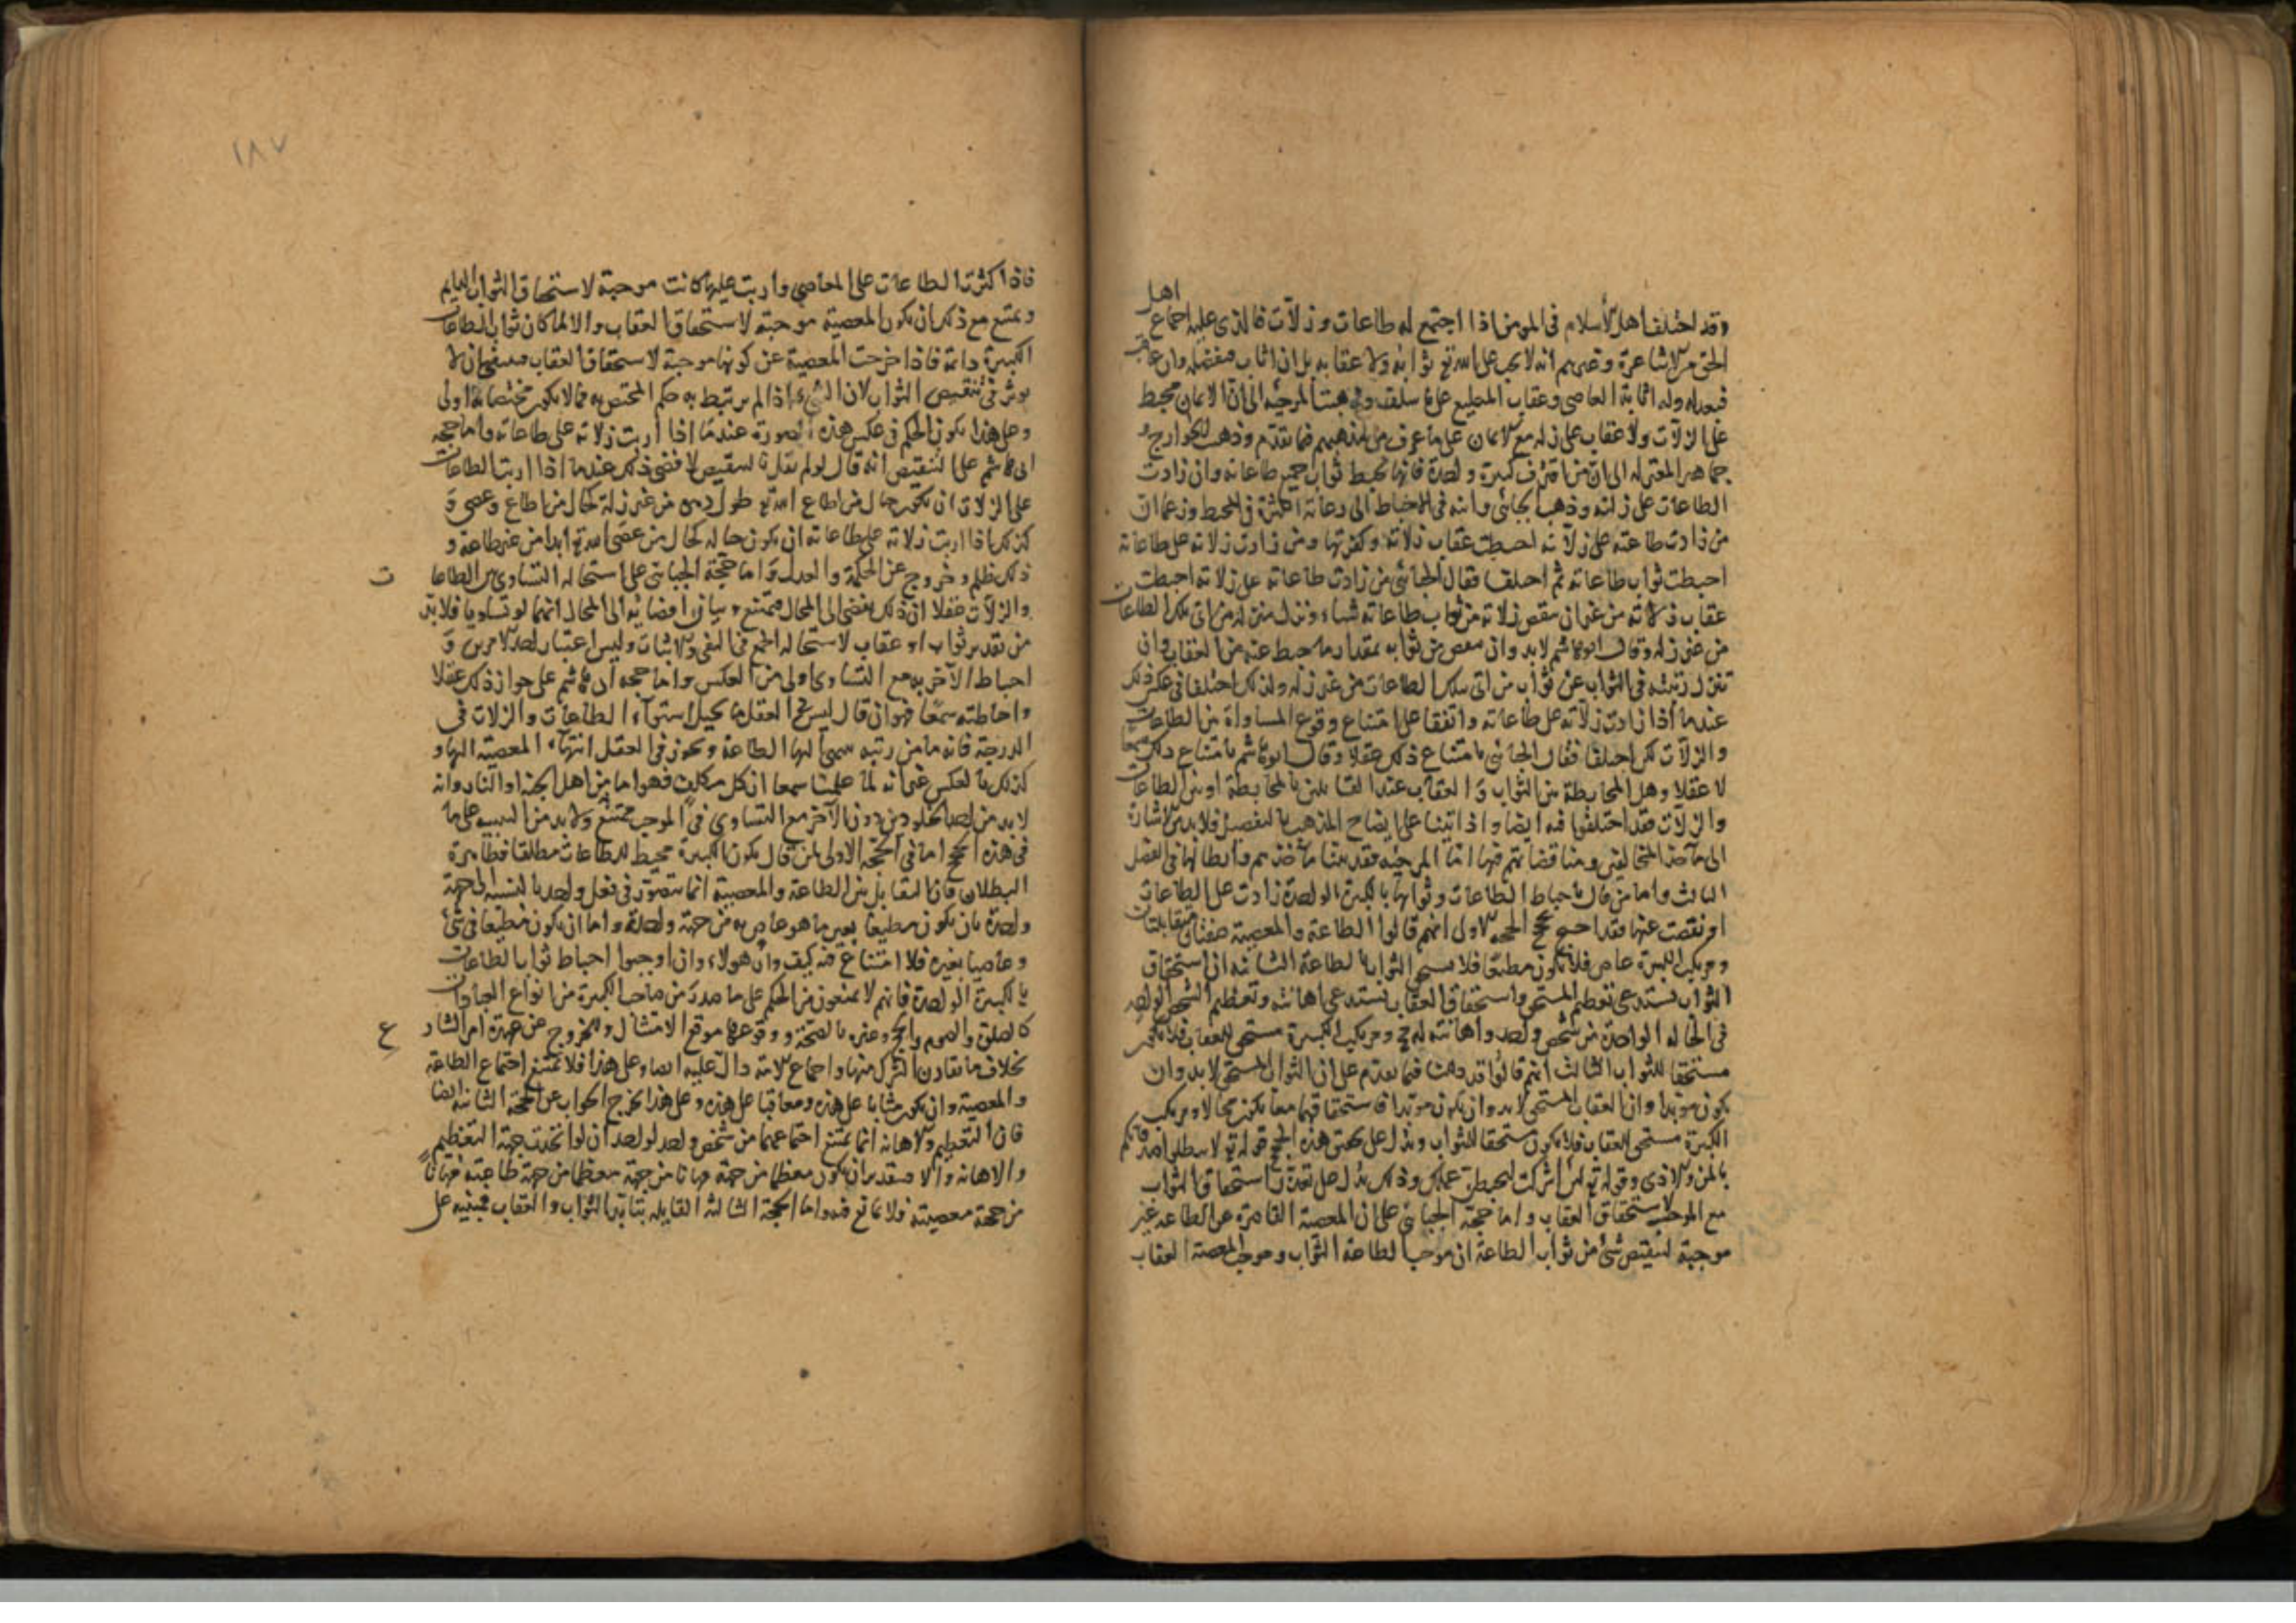 اهل
وقد اختلف اهل الاسلام فى المومن اذا اجتمع له طاعات وزلّات فالذى عليه اجماع
الحق من الاشاعرة وغيرهم انه لا يجب على الله تع ثوابه ولا عقابه بل ان اثاب فبفضله وان عاقب
فبعدله وله اثابة العاصى وعقاب المطيع على ما سلف وذهبت المرجئه الى ان الايمان محبط
على الزلات ولا عقاب على زله مع الايمان على ما عرف من مذهبهم فيما تقدم وذهب الخوارج و
جماهير المعتزله الى ان من اقترف كبيرة واحدة فانها تحبط ثواب جميع طاعاته وان زادت
الطاعات على زلته وذهب الجبائى وابنه فى الاحباط الى رعاية الكثرة فى المحبط وزعما ان
من زادت طاعته على زلاته احبطت عقاب زلاته وكفرتها ومن زادت زلاته على طاعاته
احبطت ثواب طاعاته ثم اختلفا فقال الجبائى من زادت طاعاته على زلاته احبطت
عقاب زلاته من غير ان ينقص زلاته من ثواب طاعاته شياء ونزل منزلة من اتى بتلك الطاعات
من غير زله وقال ابو هاشم لابد وان ينقص من ثوابه بمقدار ما حبط عنه من العقاب وان
تنزل رتبته فى الثواب عن ثواب من اتى بتلك الطاعات من غير زله وكذلك اختلفا فى عكس ذلك
عندما اذا زادت زلاته على طاعاته واتفقا على امتناع وقوع المساواة بين الطاعات
والزلات لكن اختلفا فقال الجبائى بامتناع ذلك عقلا وقال ابو هاشم بامتناع ذلك سمعا
لا عقلا وهل المحابطة بين الثواب والعقاب عند القائلين بالمحابطة او بين الطاعات
والزلات فقد اختلفوا فيه ايضا واذ اتينا على ايضاح المذهب بالتفصيل فلابد من الاشارة
الى مآخذ المخالفين ومناقضاتهم فيها اما المرجئه فقد بينا مآخذهم وابطالها فى الفصل
الثالث واما من قال باحباط الطاعات وثوابها بالكبيرة الواحدة زادت على الطاعات
او نقصت عنها فقد احتج بحجج الحجه الاولى انهم قالوا الطاعة والمعصية صفتان متقابلتان
ومرتكب الكبيرة عاص فلا يكون مطيعا فلا يستحق الثواب بالطاعة الثانيه ان استحقاق
الثواب يستدعى تعظيم المستحق واستحقاق العقاب يستدعى اهانته وتعظيم الشخص الواحد
فى الحالة الواحدة من شخص واحد واهانته له مح ومرتكب الكبيرة مستحق للعقاب فلا يكون
مستحقا للثواب الثالث انهم قالوا قد دللنا فيما تقدم على ان الثواب المستحق لابد وان
يكون موبدا وان العقاب المستحق لابد وان يكون موبدا فاستحقاقهما معا يكون محالا ومرتكب
الكبيرة مستحق للعقاب فلا يكون مستحقا للثواب ويدل على صحة هذه الحجج قوله تع لا تبطلوا صدقاتكم
بالمن والاذى وقوله تع لئن اشركت ليحبطن عملك وذلك يدل على تعذر استحقاق الثواب
مع الموجب لاستحقاق العقاب واما حجة الجبائى على ان المعصية القاصرة عن الطاعة غير
موجبة لتنقيص شئ من ثواب الطاعة ان موجب الطاعة الثواب وموجب المعصية العقاب
١٨٧
فاذا كثرت الطاعات على المعاصى واربت عليها كانت موجبة لاستحقاق الثواب الدايم
ويمتنع مع ذلك ان يكون المعصية موجبة لاستحقاق العقاب والا لما كان ثواب الطاعات
الكبيرة دائه فاذا خرجت المعصية عن كونها موجبة لاستحقاق العقاب فينبغى ان لا
يوثر فى تنقيص الثواب لان الشئ اذا لم يرتبط به حكم المختص به فما لا يكون مختصا به اولى
وعلى هذا يكون الحكم فى عكس هذه الصورة عندما اذا اربت زلاته على طاعاته واما حجة
ابى هاشم على التنقيص انه قال لو لم نقل بالتنقيص لافضى ذلك عندما اذا اربت الطاعات
على الزلات ان يكون حال من اطاع الله تع طول دهره من غير زلة كحال من اطاع وعصى و
كذلك اذا اربت زلاته على طاعاته ان يكون حاله كحال من عصى الله تع ابدا من غير طاعة و
ذلك ظلم وخروج عن الحكمة والعدل واما حجة الجبائى على استحالة التساوى بين الطاعا ت
والزلات عقلا ان ذلك يفضى الى المحال فيمتنع وبيان افضائه الى المحال انهما لو تساويا فلابد
من تقدير ثواب او عقاب لاستحالة الجمع فى النفى والاثبات وليس اعتبار احد الامرين و
احباط الآخر به مع التساوى اولى من العكس واما حجه ابى هاشم على جواز ذلك عقلا
واحاطته سمعا فهو ان قال ليس فى العقل ما يحيل استواء الطاعات والزلات فى
الدرجة فانه ما من رتبه ينتهى اليها الطاعة ويجوز فى العقل انتهاء المعصية اليها و
كذلك بالعكس غير انه لما علمنا سمعا ان كل مكلف فهو اما من اهل الجنة او النار وانه
لابد من احد الخلودين دون الآخر مع التساوى فى الموجب ممتنع ولابد من التنبيه على ما
فى هذه الحجج اما فى الحجة الاولى لمن قال بكون الكبيرة محبطة للطاعات مطلقا فظاهرة
البطلان فان التقابل بين الطاعة والمعصية انما يتصور فى فعل واحد بالنسبة الى جهة
واحدة بان يكون مطيعا بعين ما هو عاص به من جهة واحدة واما ان يكون مطيعا فى شئ
وعاصيا بغيره فلا امتناع فيه كيف وان هولاء وان اوجبوا احباط ثواب الطاعات
بالكبيرة الواحدة فانهم لا يمنعون من الحكم على ما صدر من صاحب الكبيرة من انواع العبادات
كالصلوة والصوم والحج وغيره بالصحة ووقوعها موقع الامتثال والخروج عن عهدة امر الشار ع
بخلاف ما يقارن الشرك منها واجماع الامة دال عليه ايضا وعلى هذا فلا يمتنع اجتماع الطاعة
والمعصية وان يكون مثابا على هذه ومعاقبا على هذه وعلى هذا يخرج الجواب عن الحجة الثانيه ايضا
فان التعظيم والاهانه انما يمتنع اجتماعهما من شخص واحد لواحد ان لو اتحدت جهة التعظيم
والاهانه والا فبتقدير ان يكون معظما من جهة مهانا من جهة معظما من جهة طاعته مهاناً
من جهة معصيته فلا مانع فيه واما الحجة الثالثه القايله بتابيد الثواب والعقاب فمبنيه على